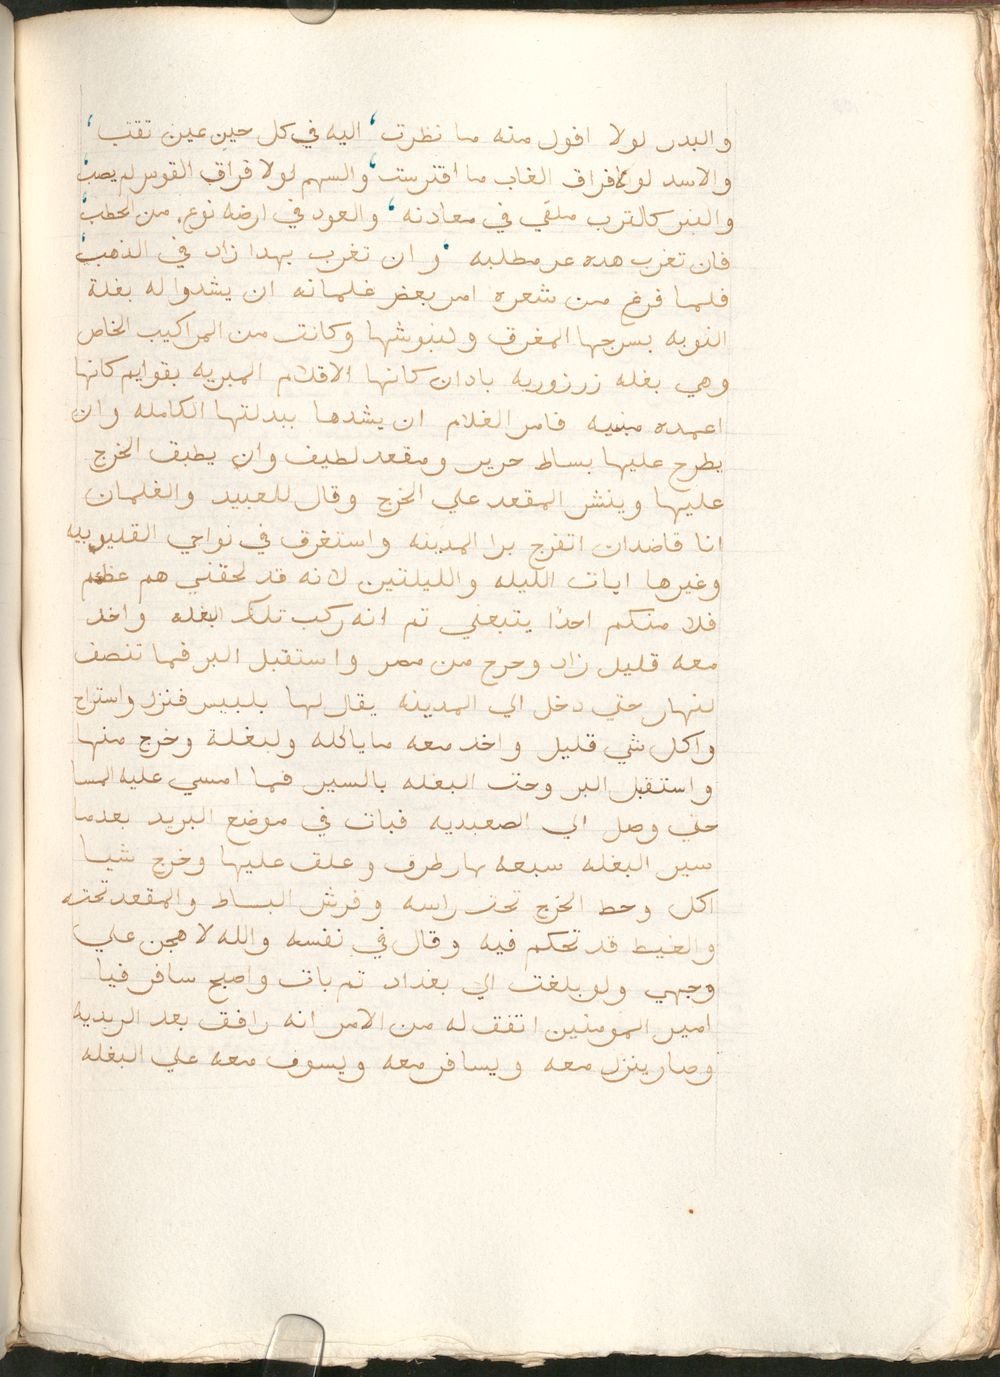 والبدر لولا افول منه ما نظرت ، اليه في كل حين عين تقتب ،
والاسد لولا فراق الغاب ما افترست ، والسهم لولا فراق القوس لم يصب ،
والتبر كالترب ملقي في معادنه ، والعود في ارضه نوع من الحطب ،
فان تغرب هده عر مطلبه ، و ان تغرب بهدا زاد في الذهب ،
فلما فرغ من شعره امر بعض غلمانه ان يشدوا له بغلة
النوبه بسرجها المغرق و كانت من المراكيب الخاص
وهي بغله زرزوريه بادان كانها الاقلام المبريه بقوايم كانها
اعمده مبنيه فامر الغلام ان يشدها ببدلتها الكامله وان
يطرح عليها بساط حرير ومقعد لطيف وان يطبق الخرج
عليها وينشر المقعد علي الخرج وقال للعبيد والغلمان
انا قاصدان اتفرج برا المدينه واستغرق في نواحي القليوبيه
وغيرها ابات الليله والليلتين لانه قد لحقني هم عظيم
فلا منكم احدًا يتبعني تم انه ركب تلك البغله واخد
معه قليل زاد وخرج من مصر واستقبل البر فما تنصف
لنهار حتي دخل الي المدينه يقال لها بلبيس فنزل واستراح
واكل شي قليل واخد معه ما ياكله ولبغلة وخرج منها
واستقبل البر وحت البغله بالسير فما امسي عليه المسا
حتي وصل الي الصعيديه فبات في موضع البريد بعدما
سير البغله سبعه وعلق عليها وخرج شيا
اكل وحط الخرج تحت راسه وفرش البساط والمقعد تحته
والغيط قد تحكم فيه وقال في نفسه والله لا هجن علي
وجهي ولو بلغت الي بغداد تم بات واصبح سافر فيا
امير المومنين اتفق له من الامر انه رافق بعد البريديه
وصار ينزل معه ويسافر معه ويسوف معه علي البغله